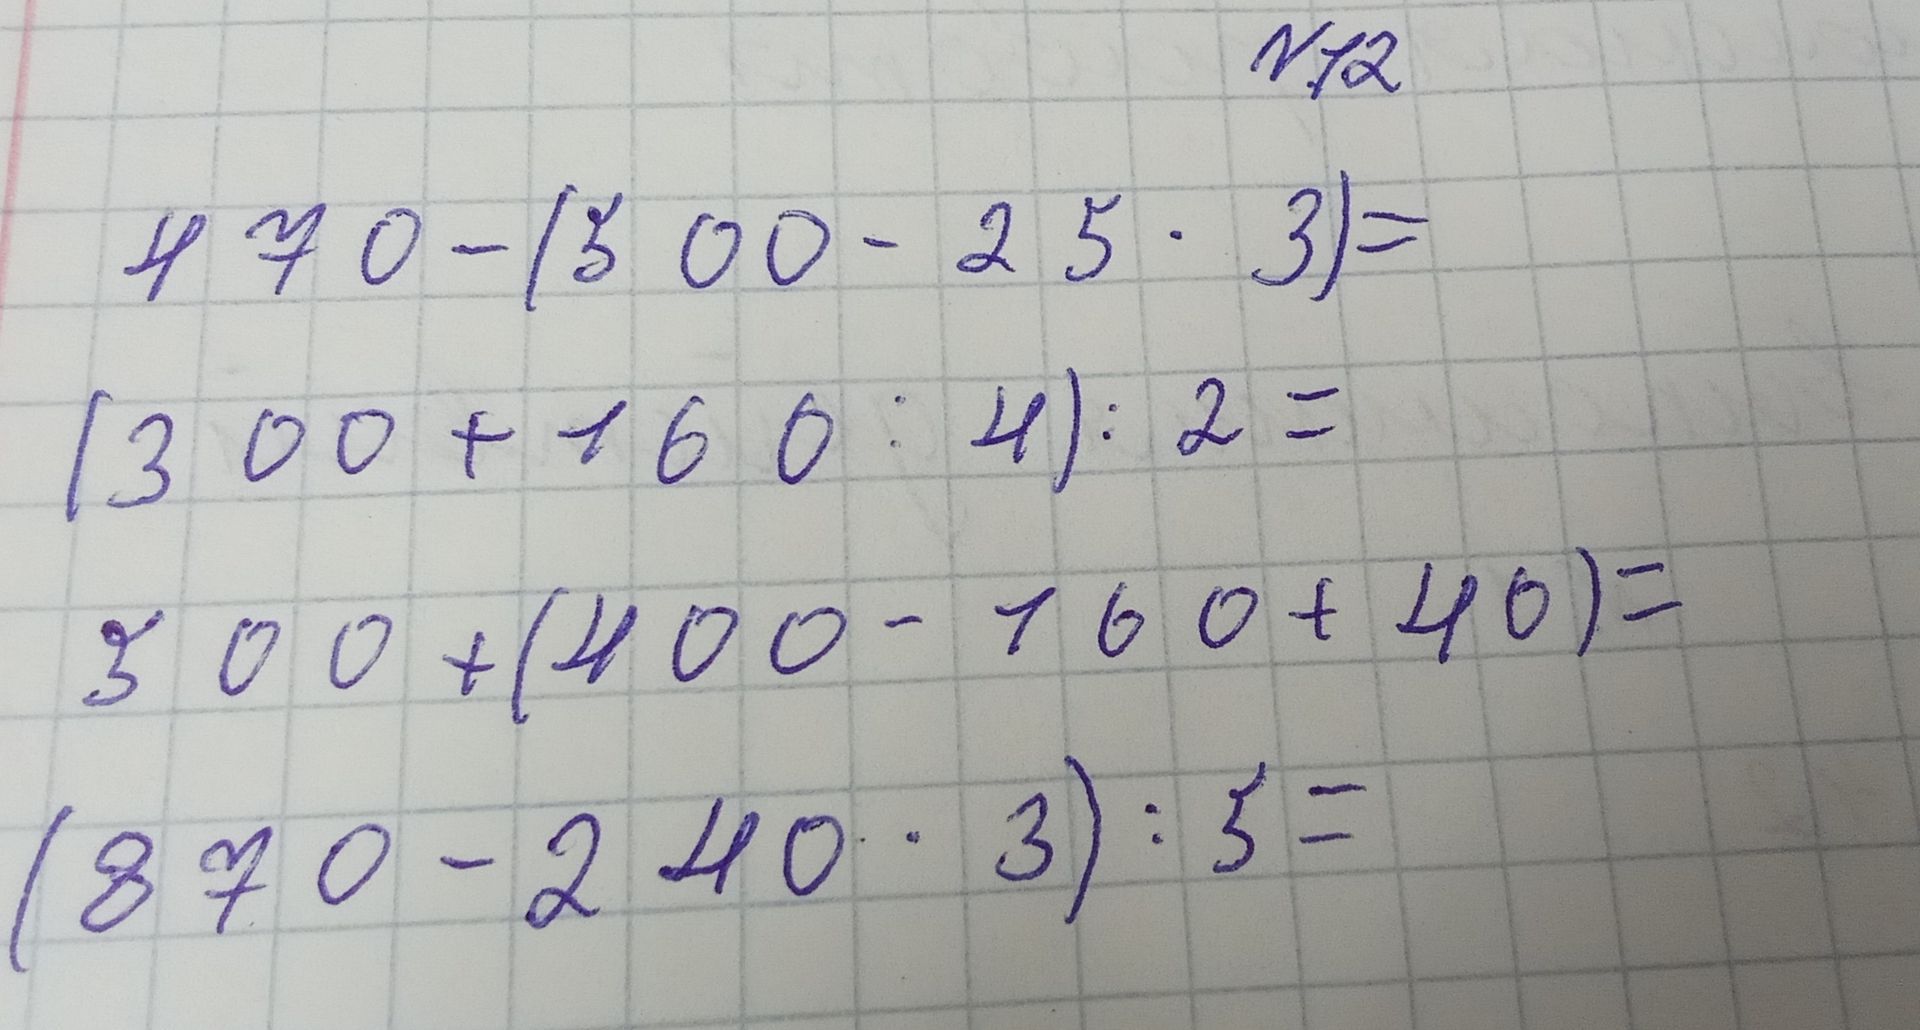 №12
470-(500-25·3)=
(300+160:4):2=
500+(400-160+40)=
(870-240·3):5=